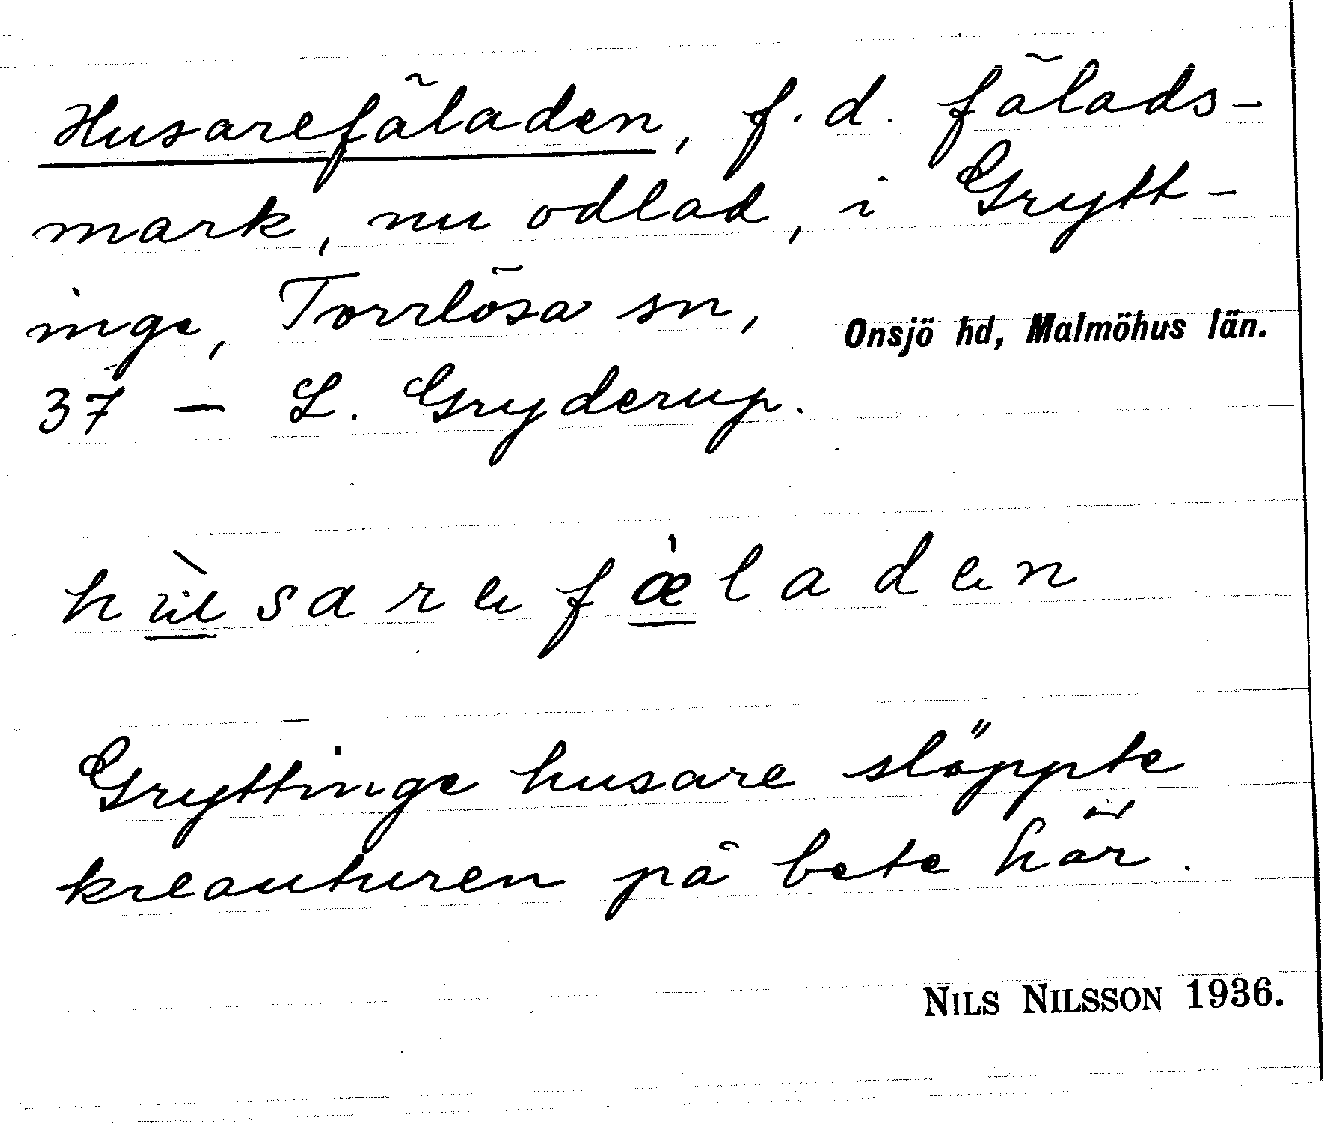 Husarefäladen, f.d. fälads-
mark, nu odlad, i Grytt-
inge, Torrlösa sn, Onsjö hd, Malmöhus län.
37 – L. Gryderup.
hùsarefæ̀laden
Gryttinge husare slöppte
kreauturen på bete här.
NILS NILSSON 1936.